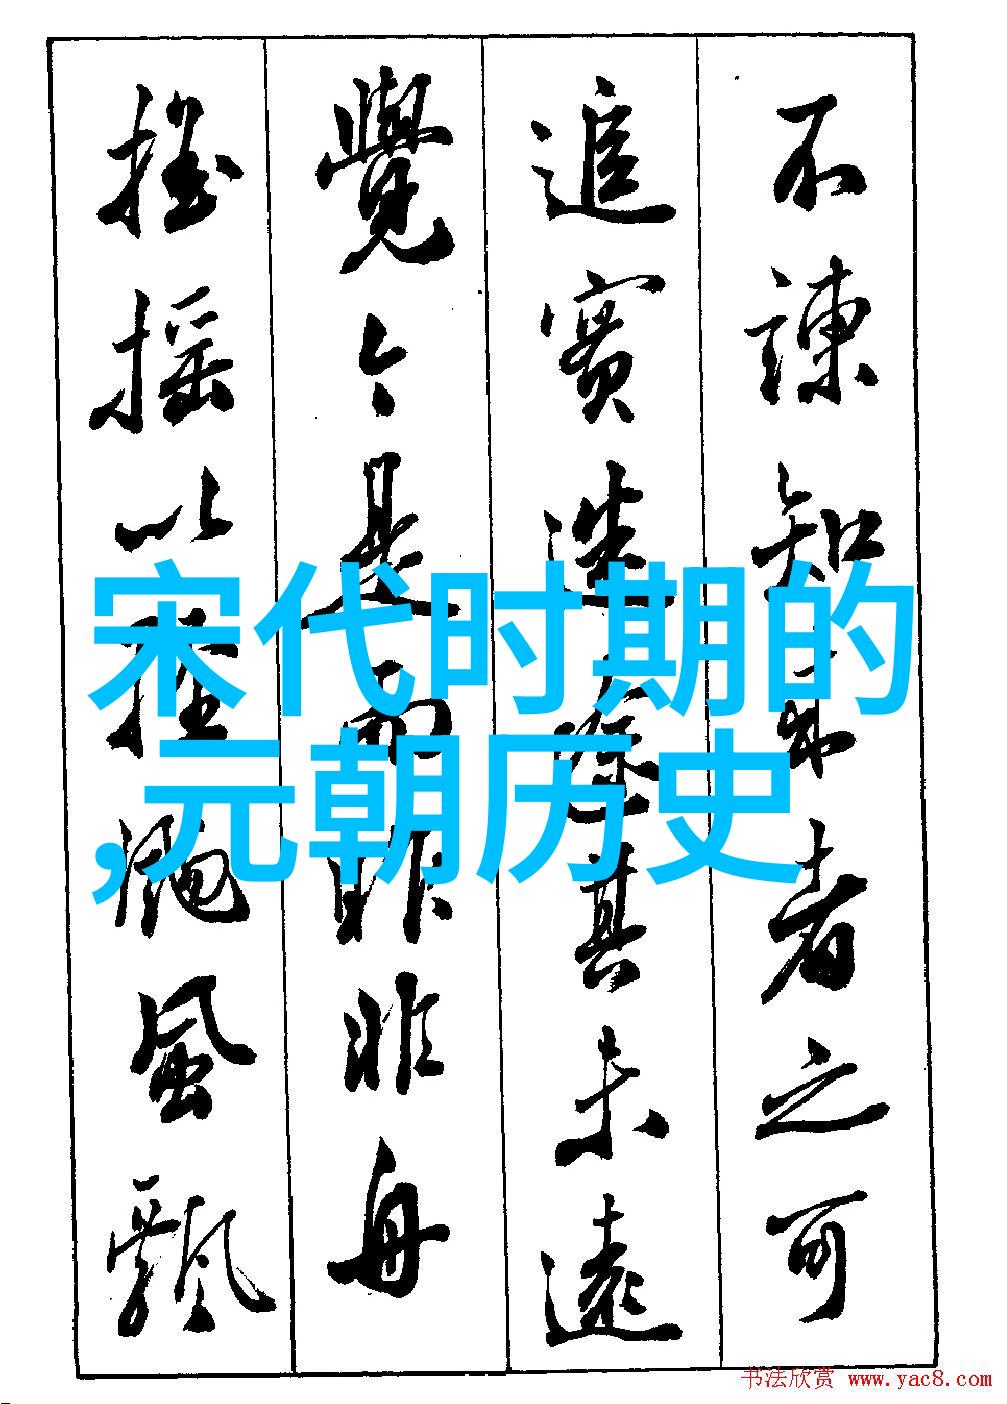 不諫知来者之可
追實迷途其未遠
覺今是而昨非舟
摇摇以輕颺風飄
宋代时期的
,元朝历史
书法欣赏 www.yac8.com